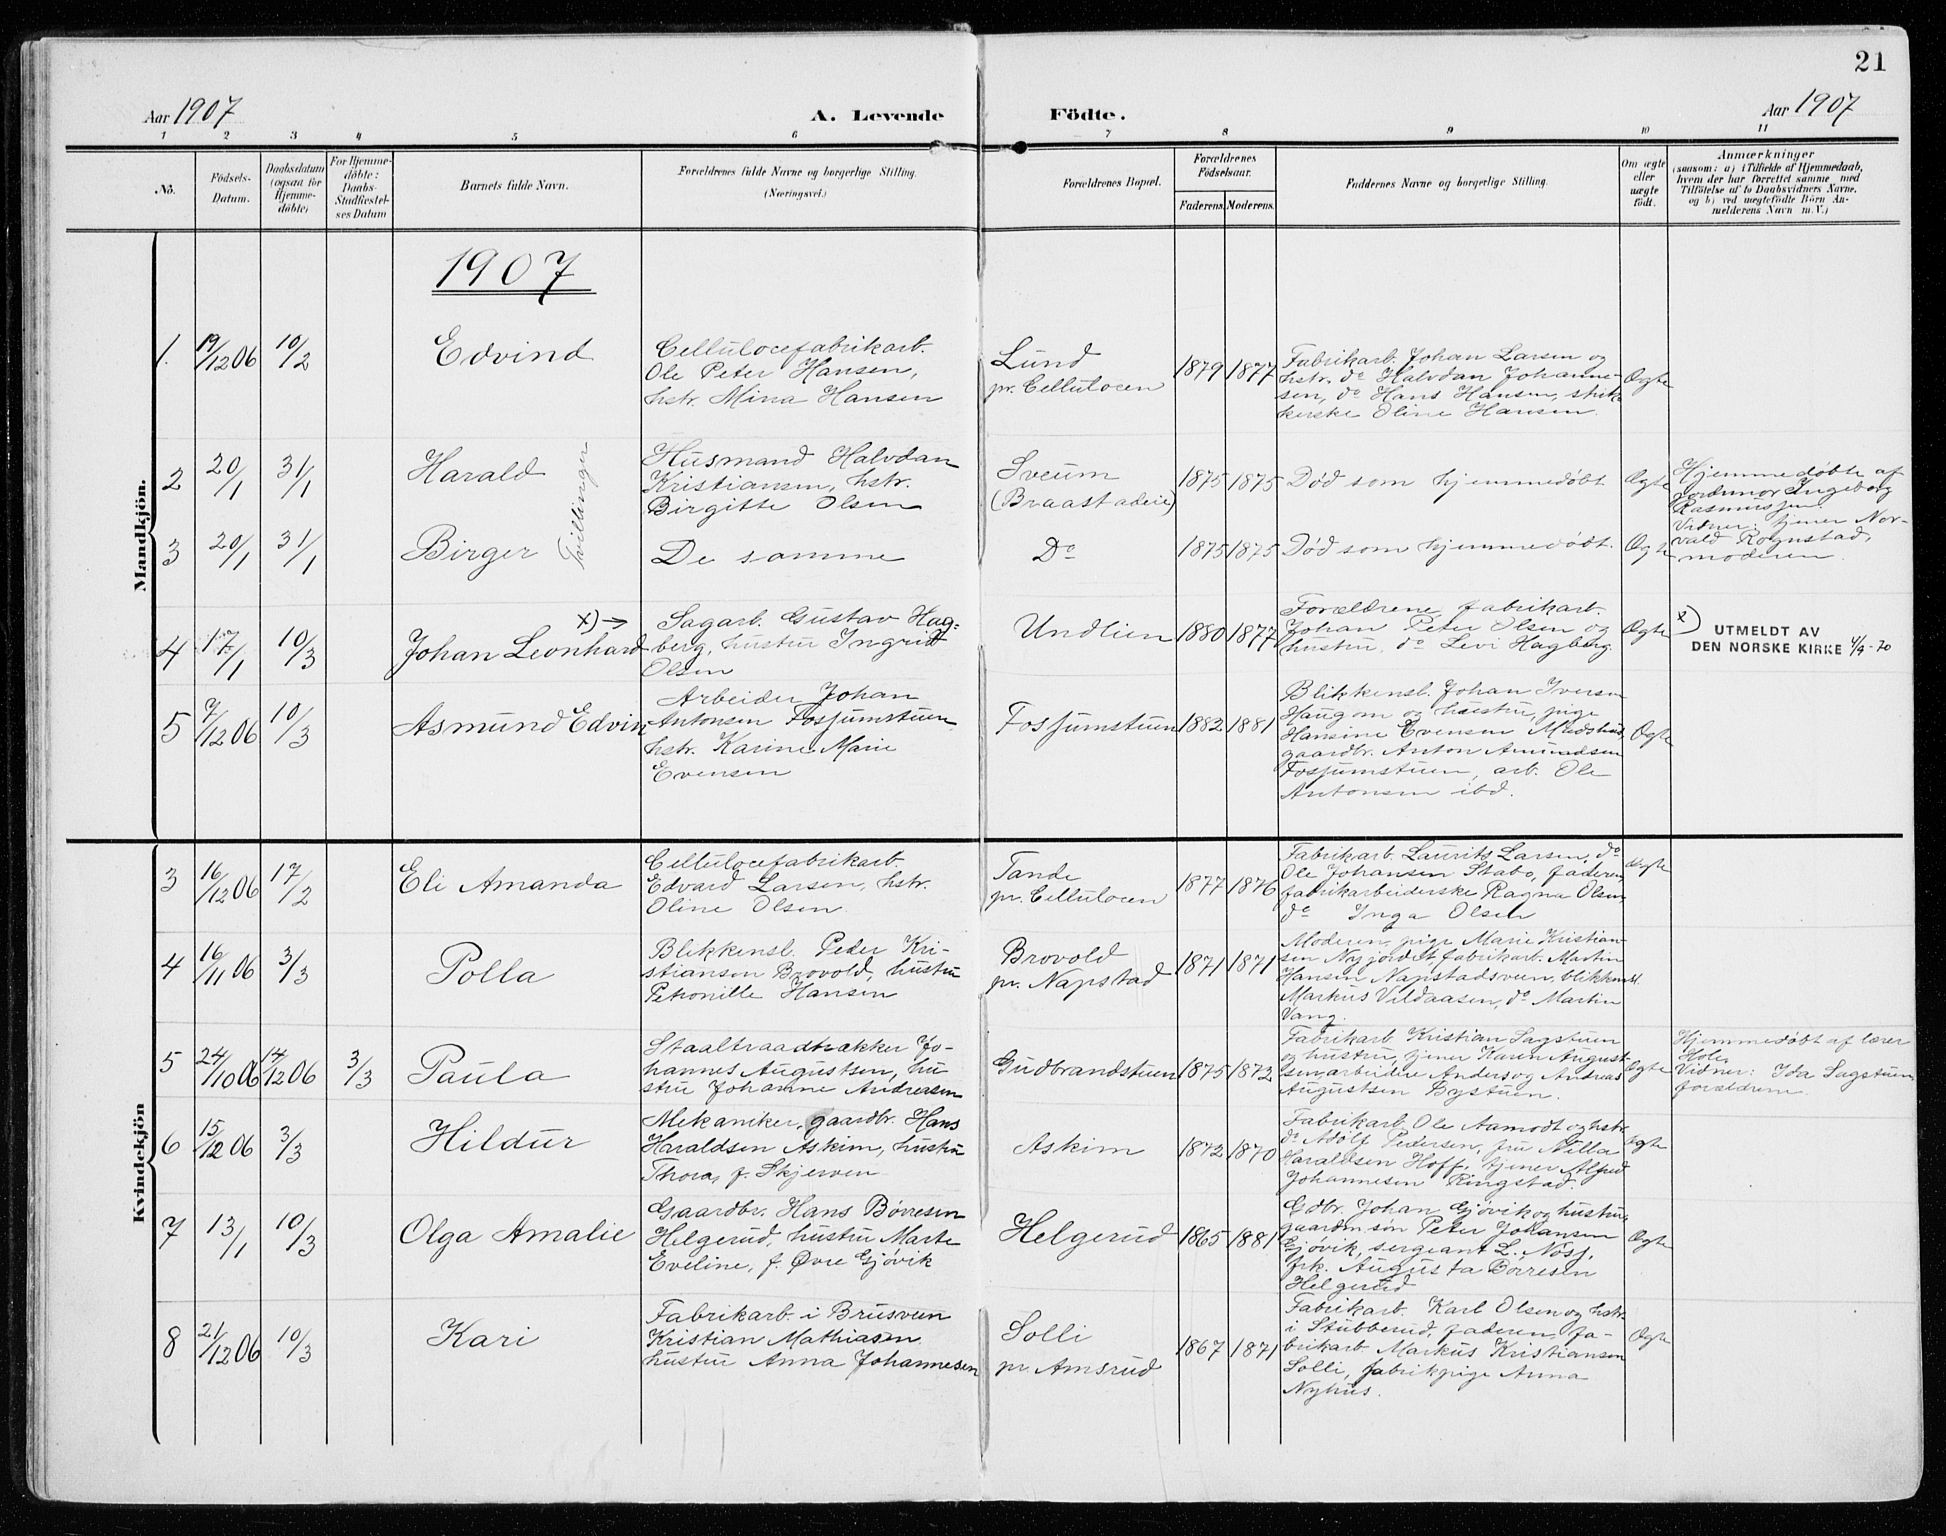 21
Aar 1907
A. Levende Födte.
Aar 1907
1 2 3 4 5 6 7 8 9 10 11
No.
Födsels-
Datum.
Daabsdatum
(ogsaa for
Hjemme-
döbte)
For Hjemme-
döbte:
Daabs-
Stadfæstel-
ses Datum
Barnets fulde Navn.
Forældrenes fulde Navne og borgerlige Stilling.
(Næringsvei.)
Forældrenes Bopæl.
Forældrenes
Födselsaar.
Faderens. Moderens.
Faddernes Navne og borgerlige Stilling.
Om ægte
eller
uægte
födt.
Anmærkninger
(saasom: a) i Tilfælde af Hjemmedaab,
hvem der har forrettet samme med
Tilföielse af to Daabsvidners Navne,
og b) ved uægtefödte Börn An-
melderens Navn m. V.)
Mandkjön.
1907
1. 19/12 06 10/2 Edvind
Cellulocefabrikarb.
Ole Peter Hansen,
hstr. Mina Hansen
Lund
pr. Cellulocen
1879 1877
Fabrikarb. Johan Larsen og
hstr. do Halvdan Johanne-
sen, do Hans Hansen, strik-
kerske Oline Hansen.
Ægte
2 20/1 31/1 Harald
Tvillinger
Husmand Halvdan
Kristiansen, hstr.
Birgitte Olsen
Sveum
(Braastadeie)
1875 1875
Død som hjemmedøbt
Ægte
Hjemmedøbte af
jordmor Ingeborg
Rasmussen.
Vidner: tjener Nor-
vald Rognstad,
moderen
3 20/1 31/1 Birger
De samme
Do
1875 1875
Død som hjemmedøbt.
Ægte
4 17/1 10/3 Johan Leonhard x)→
Sagarb. Gustav Hag-
berg, hustru Ingrid
Olsen
Undlien
1880 1877
Forældrene, fabrikarb.
Johan Peter Olsen og
hustru, do Levi Hagberg.
Ægte
x)
UTMELDT AV
DEN NORSKE KIRKE 4/9-70
5 7/12 06 10/3 Asmund Edvin
Arbeider Johan
Antonsen Fossumstuen
hstr. Karine Marie
Evensen
Fossumstuen
1882 1881
Blikkensl. Johan Iversen
Haugom og hustru, pige
Hansine Evensen
gaardbr. Anton Amundsen
Fossumstuen, arb. Ole
Antonsen ibd.
Ægte
Kvindekjön
3 16/12 06 17/2 Eli Amanda
Cellulocefabrikarb.
Edvard Larsen, hstr.
Oline Olsen
Tande
pr. Cellulocen
1877 1876
Fabrikarb. Laurits Larsen, do
Ole Johansen Stabo, faderen,
fabrikarbeiderske Ragna Olsen,
do Inga Olsen
Ægte
4 16/11 06 3/3 Polla
Blikkensl. Peder Kri-
stiansen Brovold, hustru
Petronille Hansen
Brovold
pr. Napstad
1871 1871
Moderen, pige Marie Kristian-
sen Nygjordet, fabrikarb. Martin
Hansen Napstadsveen, blikkensl.
Markus Vildaasen, do Martin
Vang.
5 24/10 06 14/12 06 3/3 Paula
Staaltraadtrækker Jo-
hannes Augustsen, hu-
stru Johanne Andersen
Gudbrandstuen
1875 1872
Fabrikarb. Kristian Sagstuen
og hustru, tjener Karen August-
sen, arbeidere Anders og Andreas
Augustsen Bystuen.
Ægte
Hjemmedøbt af lærer
Hole
Vidner: Ida Sagstuen,
forældrene.
6 15/12 06 3/3 Hildur
Mekaniker, gaardbr. Hans
Haraldsen Askim, hustru
Thora, f. Skjerven
Askim
1872 1870
Fabrikarb. Ole Aamodt og hstr.
do Adolf Pedersen, fru Nilla
Haraldsen Hoff, tjener Alfred
Johannesen Ringstad.
Ægte
7 13/1 10/3 Olga Amalie
Gaardbr. Hans Børresen
Helgerud, hustru Marte
Eveline, f. Øvre Gjøvik
Helgerud
1865 1881
Gdbr. Johan Gjøvik og hustru,
gaardm.søn Peter Johansen
Gjøvik, sergeant L. Nøss,
frk. Augusta Børresen
Helgerud
Ægte
8 21/12 06 10/3 Kari
Fabrikarb. i Brusveen
Kristian Mathiasen
hustru Anna Johannesen
Solli
pr. Amsrud
1867 1871
Fabrikarb. Karl Olsen og hstr.
i Stubberud, faderen, fa-
brikarb. Markus Kristiansen
Solli, fabrikpige Anna
Nyhus.
Ægte